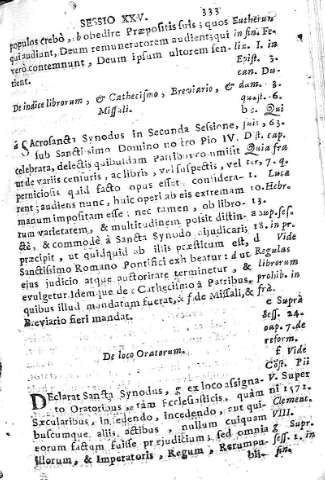 SESSIO XXV. 333
populos crebò, obedire Præpositis suis; quos
qui audiant, Deum remuneratorem audient; qui
verò contemnunt, Deum ipsum ultorem sen-
tient.
De indice librorum, & Cathecismo, Breviario, &
Missali.
SAcrosancta Synodus in Secunda Sessione,
sub Sanctissimo Domino nostro Pio IV.
celebrata, delectis quibusdam Patribus commisit
ut de variis censuris, ac libris, vel suspectis, vel
perniciosis quid facto opus esset, considera-
rent; audiens nunc, huic operi ab eis extremam
manum impositam esse; nec tamen, ob libro-
rum varietatem, & multitudinem possit distin-
ctè, & commodè à Sancta Synodo dijudicari;
præcipit, ut quidquid ab illis præstitum est,
Sanctissimo Romano Pontifici exhibeatur: ut
ejus judicio atque auctoritate terminetur, &
evulgetur. Idemque de c Cathecismo à Patribus,
quibus illud mandatum fuerat, & f de Missali, &
Breviario fieri mandat.
De loco Oratorum.
DEclarat Sancta Synodus, g ex loco assigna-
to Oratoribus tam Ecclesiasticis, quàm
Sæcularibus, in sedendo, incedendo, aut qui-
buscumque aliis actibus, nullum cuiquam
eorum factum fuisse præjudicium; sed omnia
illorum, & Imperatoris, Regum, Rerumpu-
Eutherum
in fin. Fe-
liz. I. in
Epist. 3.
can. Du-
dum. 3.
quæst. 6.
b c. Qui
Dist. cap.
Quia fra
7. q.
1. Luca
10. Hebr.
13.
a sup. ses.
18. in pr.
d Vide
Regulas
librorum
prohib. in
frà.
e Suprà
Sess. 24.
cap. 7. de
reform.
f Vide
Cōst. Pii
V. Super
ni 1571.
Clement.
VIII.
g Supr.
sess. 1. in
fin.